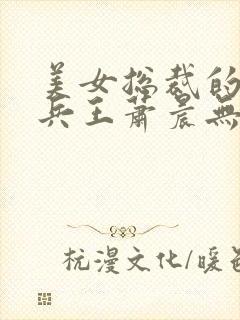 美女总裁的
兵王萧晨无
杭漫文化/暖